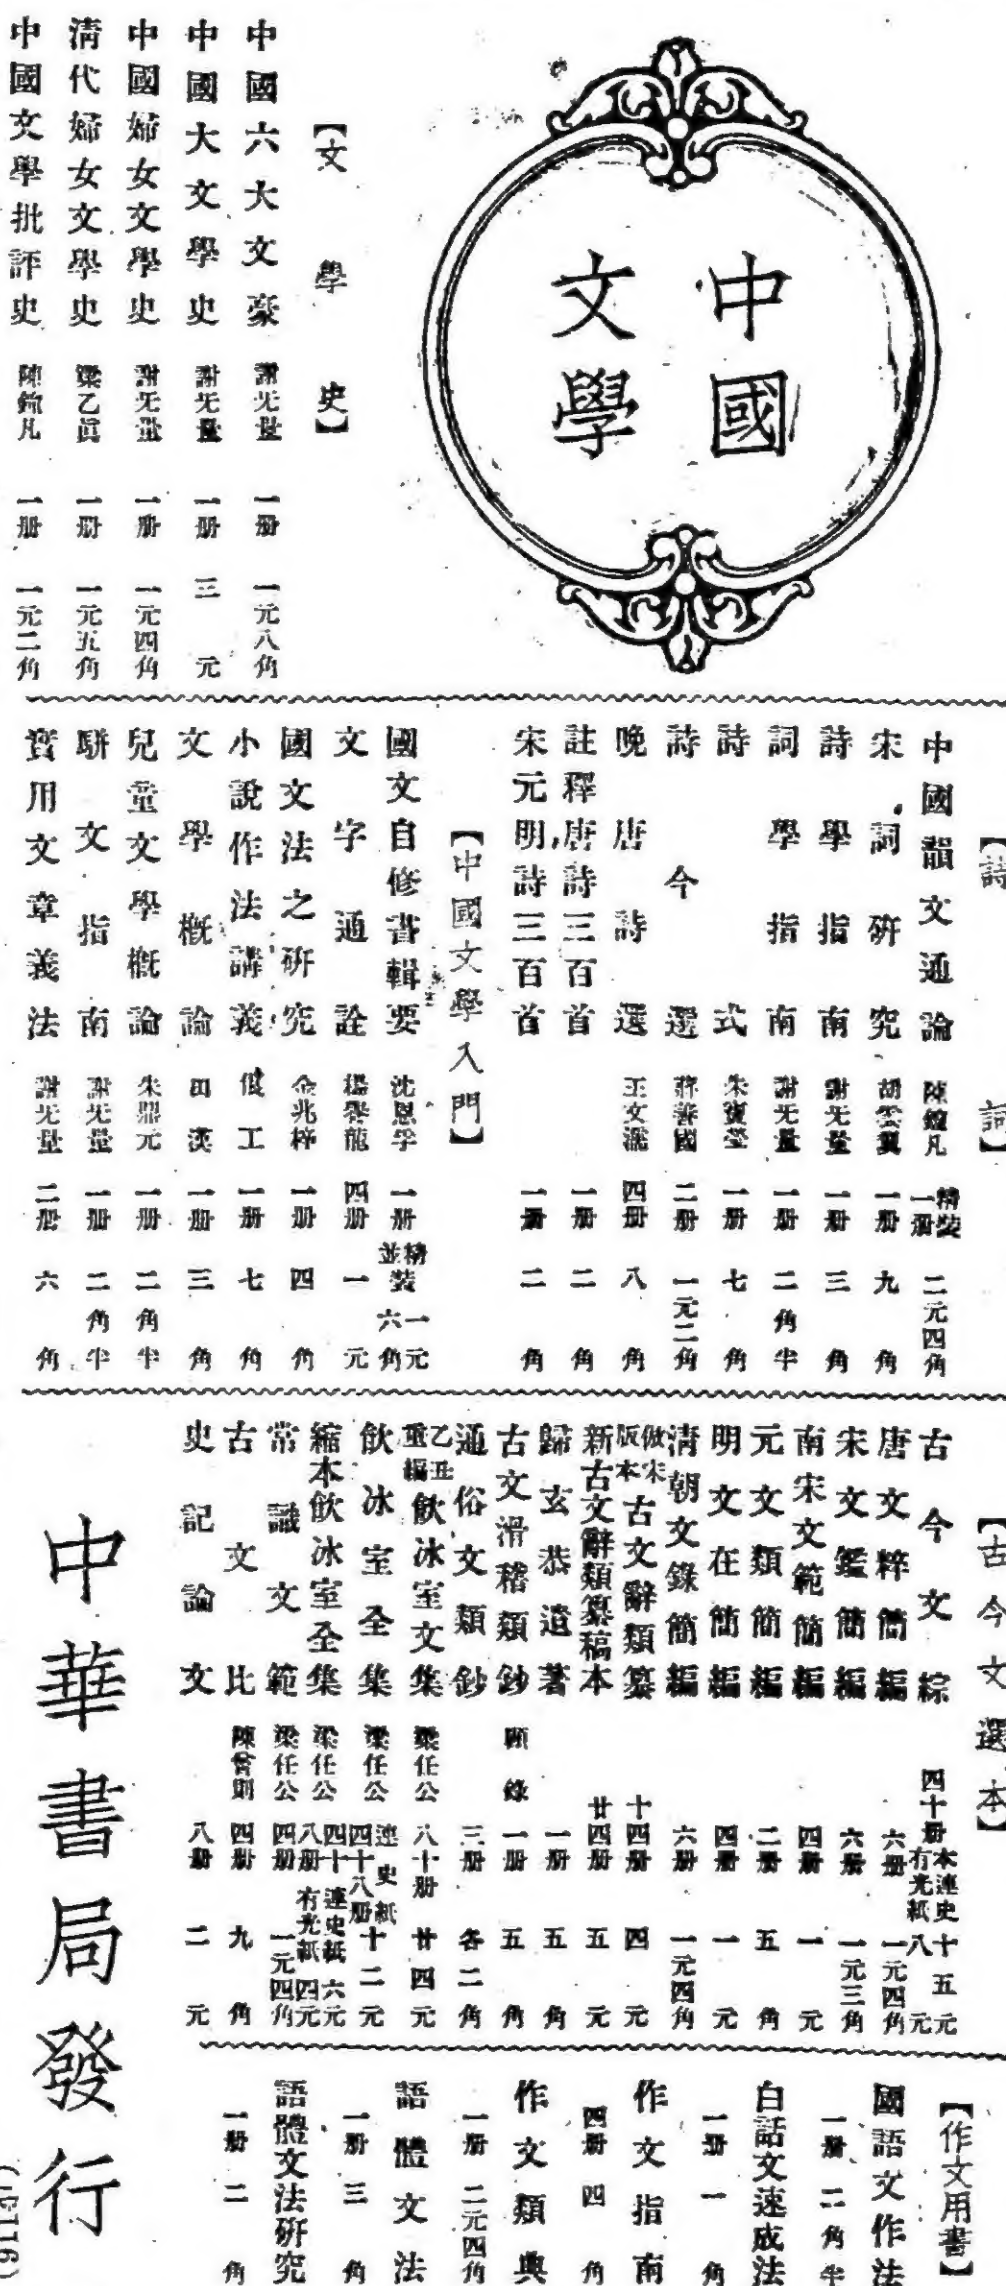 中國
文學
【文學史】
中國六大文豪 謝无量 一册 一元八角
中國大文學史 謝无量 一册 三元
中國婦女文學史 謝无量 一册 一元四角
清代婦女文學史 梁乙眞 一册 一元五角
中國文學批評史 陳鐘凡 一册 一元二角
【詩詞】
中國韻文通論 陳鐘凡 精裝一册 二元四角
宋詞研究 胡雲翼 一册 九角
詩學指南 謝无量 一册 三角
詞學指南 謝无量 一册 二角半
詩式 朱寶瑩 一册 七角
詩今選 蔣善國 二册 一元二角
晚唐詩選 王文濡 四册 八角
註釋唐詩三百首 一册 二角
宋元明詩三百首 一册 二角
【中國文學入門】
國文自修書輯要 沈恩孚 一册 精裝一元 並裝六角
文字通詮 楊譽龍 四册 一元
國文法之研究 金兆梓 一册 四角
小說作法講義 俍工 一册 七角
文學概論 田漢 一册 三角
兒童文學概論 朱鼎元 一册 二角半
駢文指南 謝无量 一册 二角半
實用文章義法 謝无量 二册 六角
【古今文選本】
古今文綜 四十册 本連史十五元 有光紙八元
唐文粹簡編 六册 一元四角
宋文鑑簡編 六册 一元三角
南宋文範簡編 四册 一元
元文類簡編 二册 五角
明文在簡編 四册 一元
清朝文錄簡編 六册 一元四角
倣宋版本古文辭類纂 十四册 四元
新古文辭類纂稿本 廿四册 五元
歸玄恭遺著 一册 五角
古文滑稽類鈔 顧錄 一册 五角
通俗文類鈔 三册 各二角
乙丑重編飲冰室文集 梁任公 八十册 廿四元
飲冰室全集 梁任公 連史紙四十八册 十二元
縮本飲冰室全集 梁任公 四十八册 連史紙六元 有光紙四元
常識文範 梁任公 四册 一元四角
古文比 陳曾則 四册 九角
史記論文 八册 二元
【作文用書】
國語文作法 一册 二角半
白話文速成法 一册 一角
作文指南 四册 四角
作文類典 一册 二元四角
語體文法 一册 三角
語體文法研究 一册 二角
中華書局發行